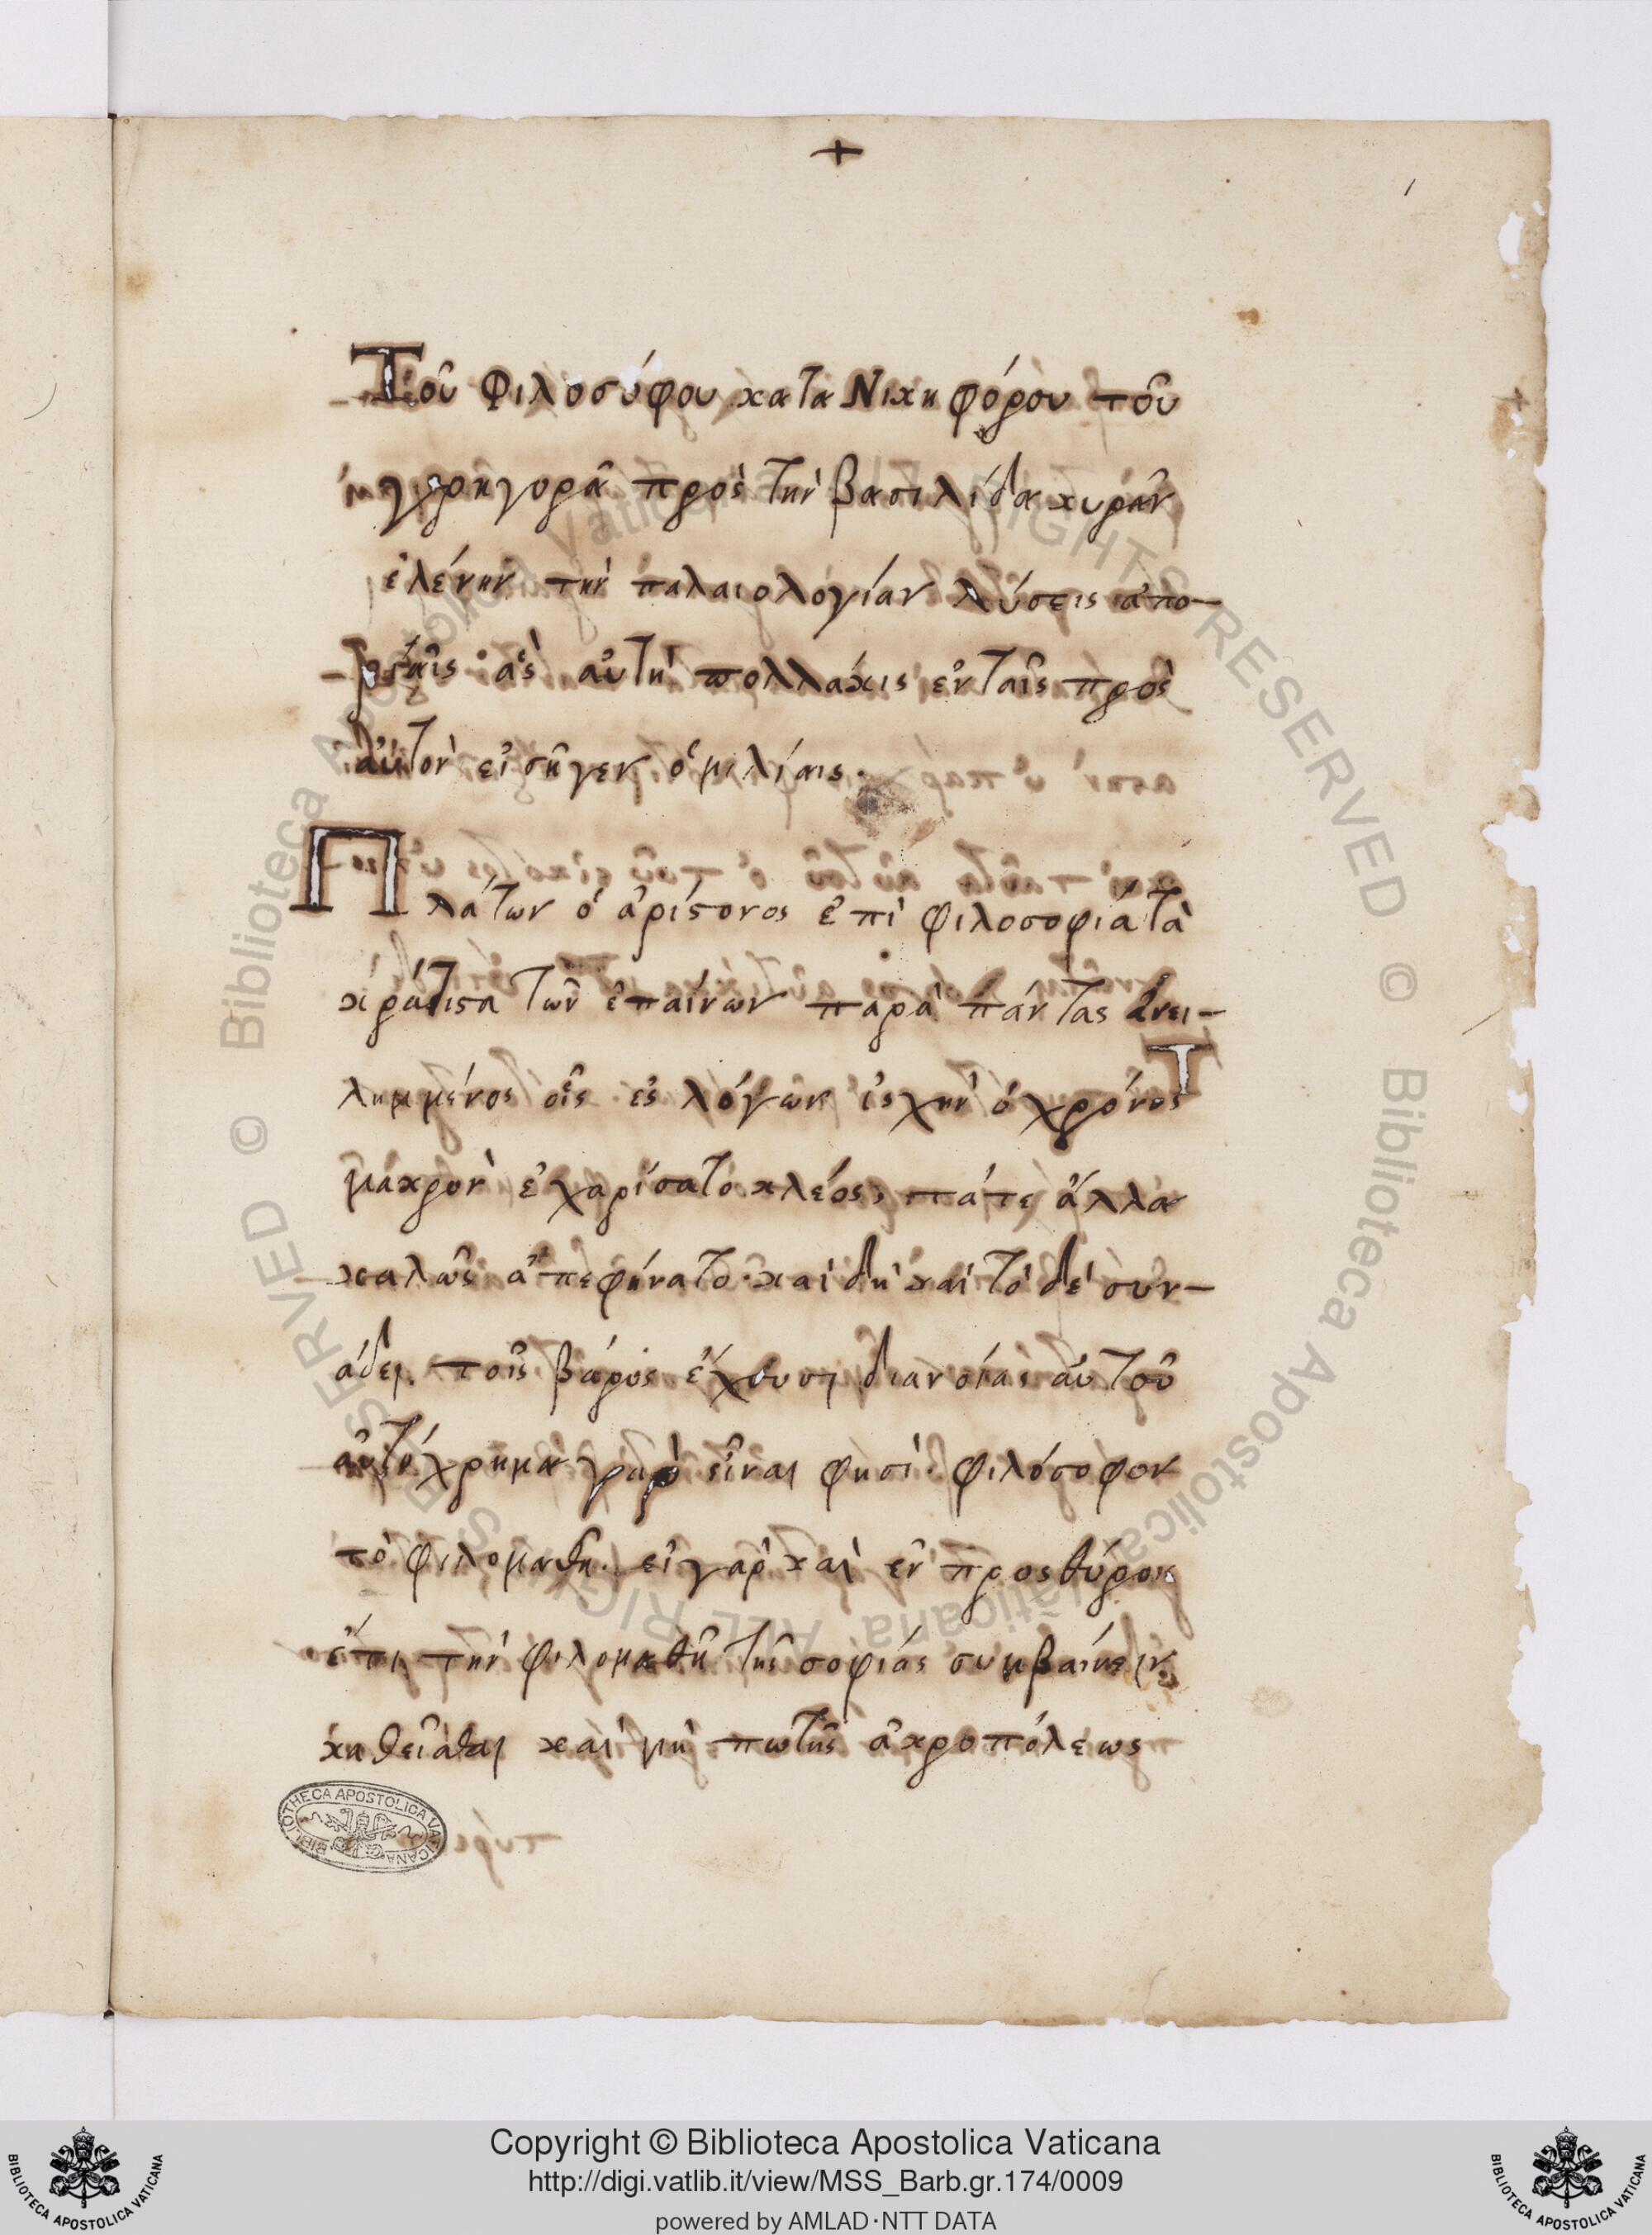 +
1
Τοῦ Φιλοσόφου κατα Νικηφόρου τοῦ
γρηγορᾶ πρὸς τὴν βασιλίδα κυρὰν
ἑλένην τὴν παλαιολογίαν λύσεις ἀπο-
αὐτὴ πολλάκις ἐν ταῖς πρὸς
αὐτὸν εἰσῆγεν ὁμιλίαις.
Πλάτων ὁ ἀρίστονος ἐπὶ φιλοσοφία τὰ
κράτιστα τῶν ἐπαίνων παρὰ πάντας ἀνει-
λημμένος οἷς ἐς λόγων ἰσχὴν ὁ χρόνος
μακρὸν ἐχαρίσατο κλέος, πάτε ἄλλα
καλῶς ἀπεφήνατο· καὶ δὴ καὶ τὸ δὲ συν-
άδει τοῖς βάρος ἔχουσι διανοίας αὐτοῦ
αὐτόχρημα γὰρ εἶναι φησὶ· φιλόσοφον
τὸ φιλομαθῆ· εἰ γὰρ καὶ ἐν προσθύροις
ἔτι τὴν φιλομαθῆ τῆς σοφίας συμβαίνειν
καὶ μὴ πω τῆς ἀκροπόλεως
BIBLIOTHECA APOSTOLICA VATICANA
© Biblioteca Apostolica Vaticana ALL RIGHTS RESERVED
© Biblioteca Apostolica Vaticana ALL RIGHTS RESERVED
Copyright © Biblioteca Apostolica Vaticana
http://digi.vatlib.it/view/MSS_Barb.gr.174/0009
powered by AMLAD·NTT DATA
BIBLIOTECA APOSTOLICA VATICANA
BIBLIOTECA APOSTOLICA VATICANA